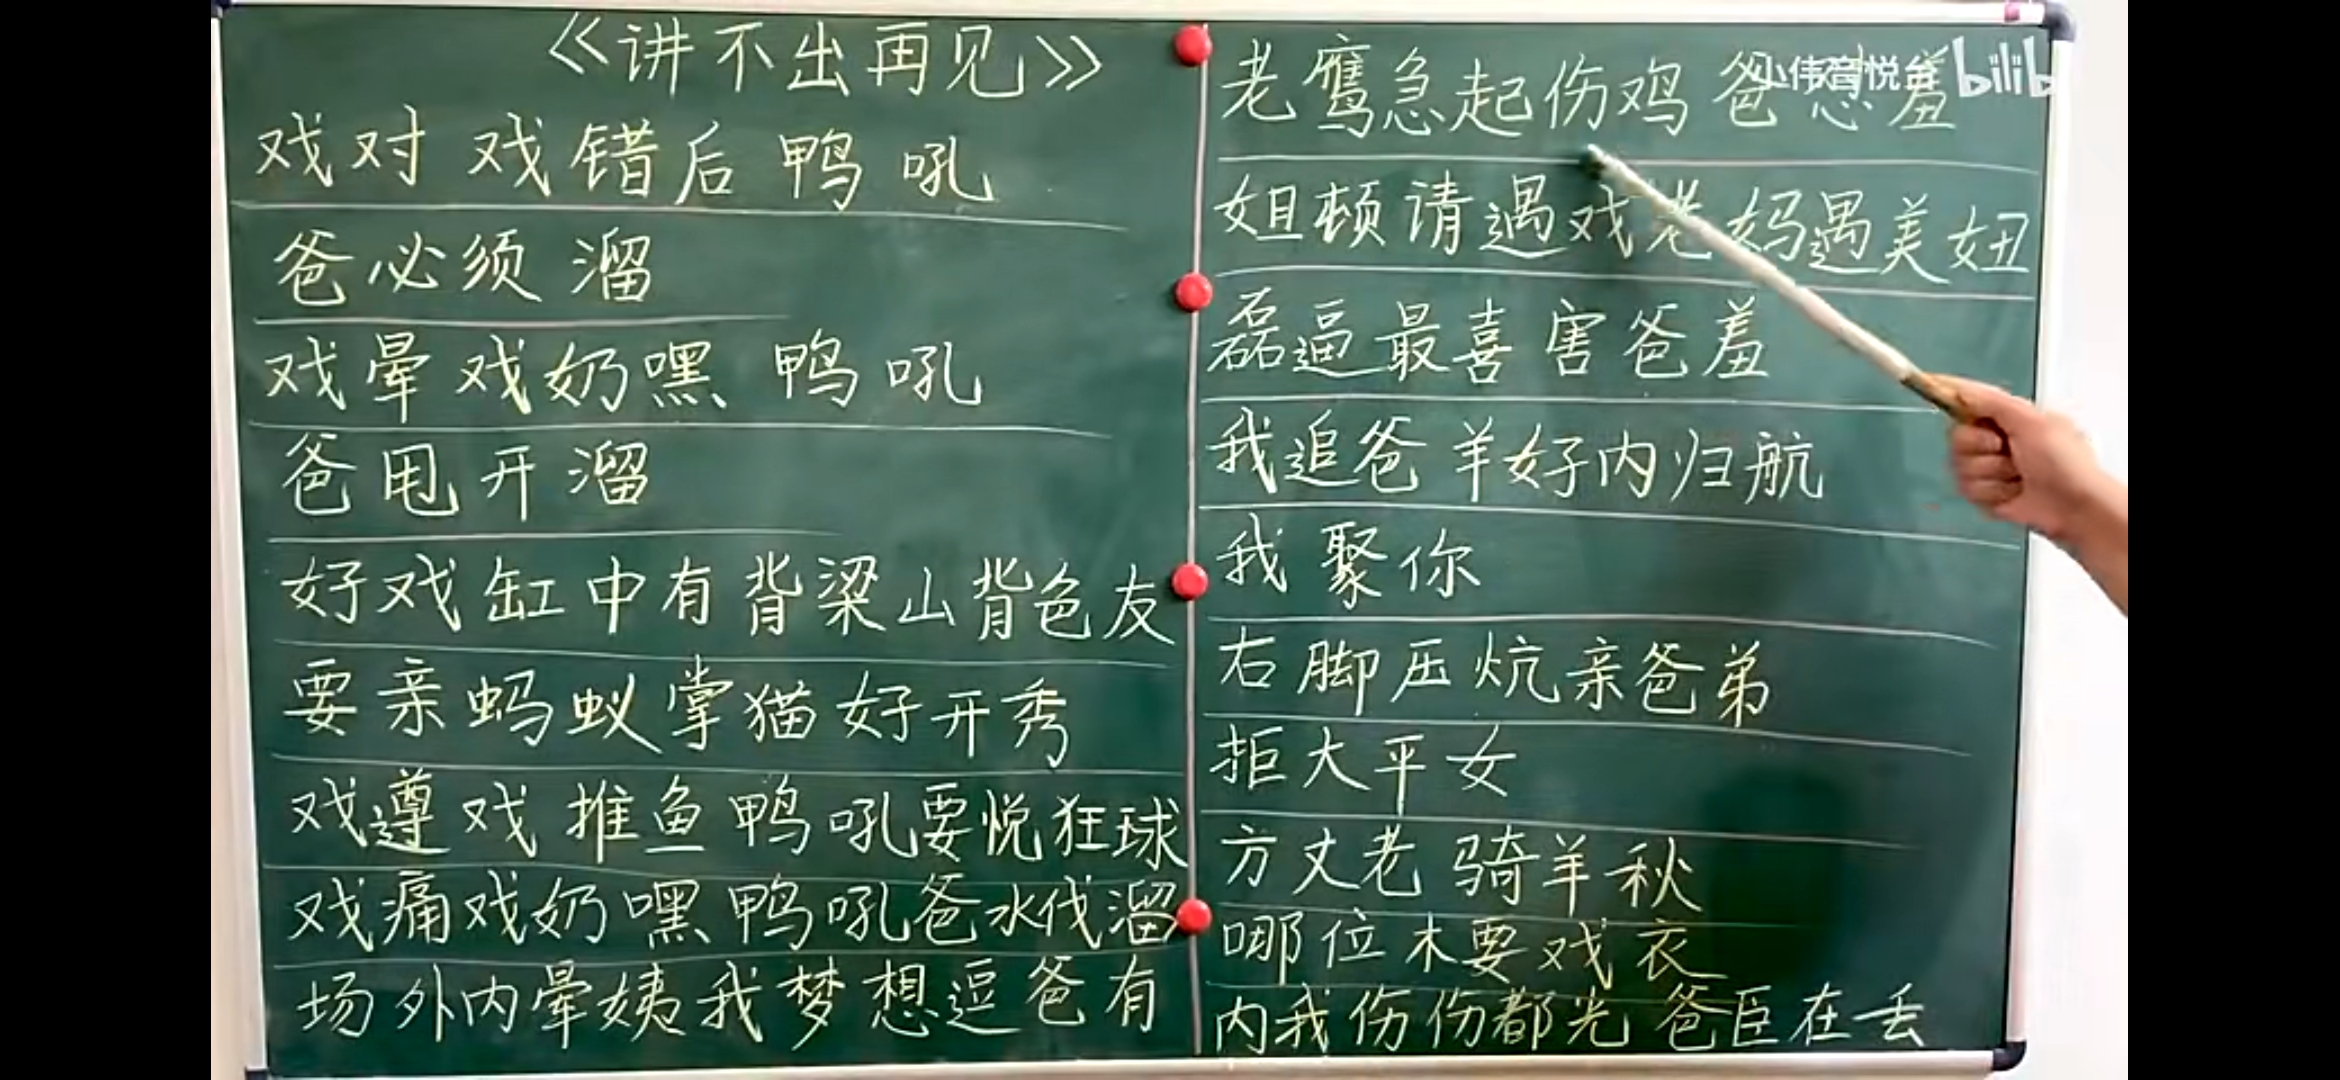 《讲不出再见》
戏对 戏错后 鸭 吼
爸必须 溜
戏晕戏奶嘿 鸭 吼
爸甩开溜
好戏缸中有背梁山背色友
要亲蚂蚁掌猫好开秀
戏遵戏推鱼鸭吼要悦狂球
戏痛戏奶嘿鸭吼爸水伐溜
场外内晕姨我梦想逗爸有
老鹰急起伤鸡 爸 羞
小伟音悦台 bilib
姐顿请遇戏老妈遇美妞
磊逼最喜害爸羞
我追爸羊好内归航
我聚你
右脚压炕亲爸弟
拒大平女
方丈老骑羊秋
哪位木要戏衣
内我伤伤都光 爸臣在丢